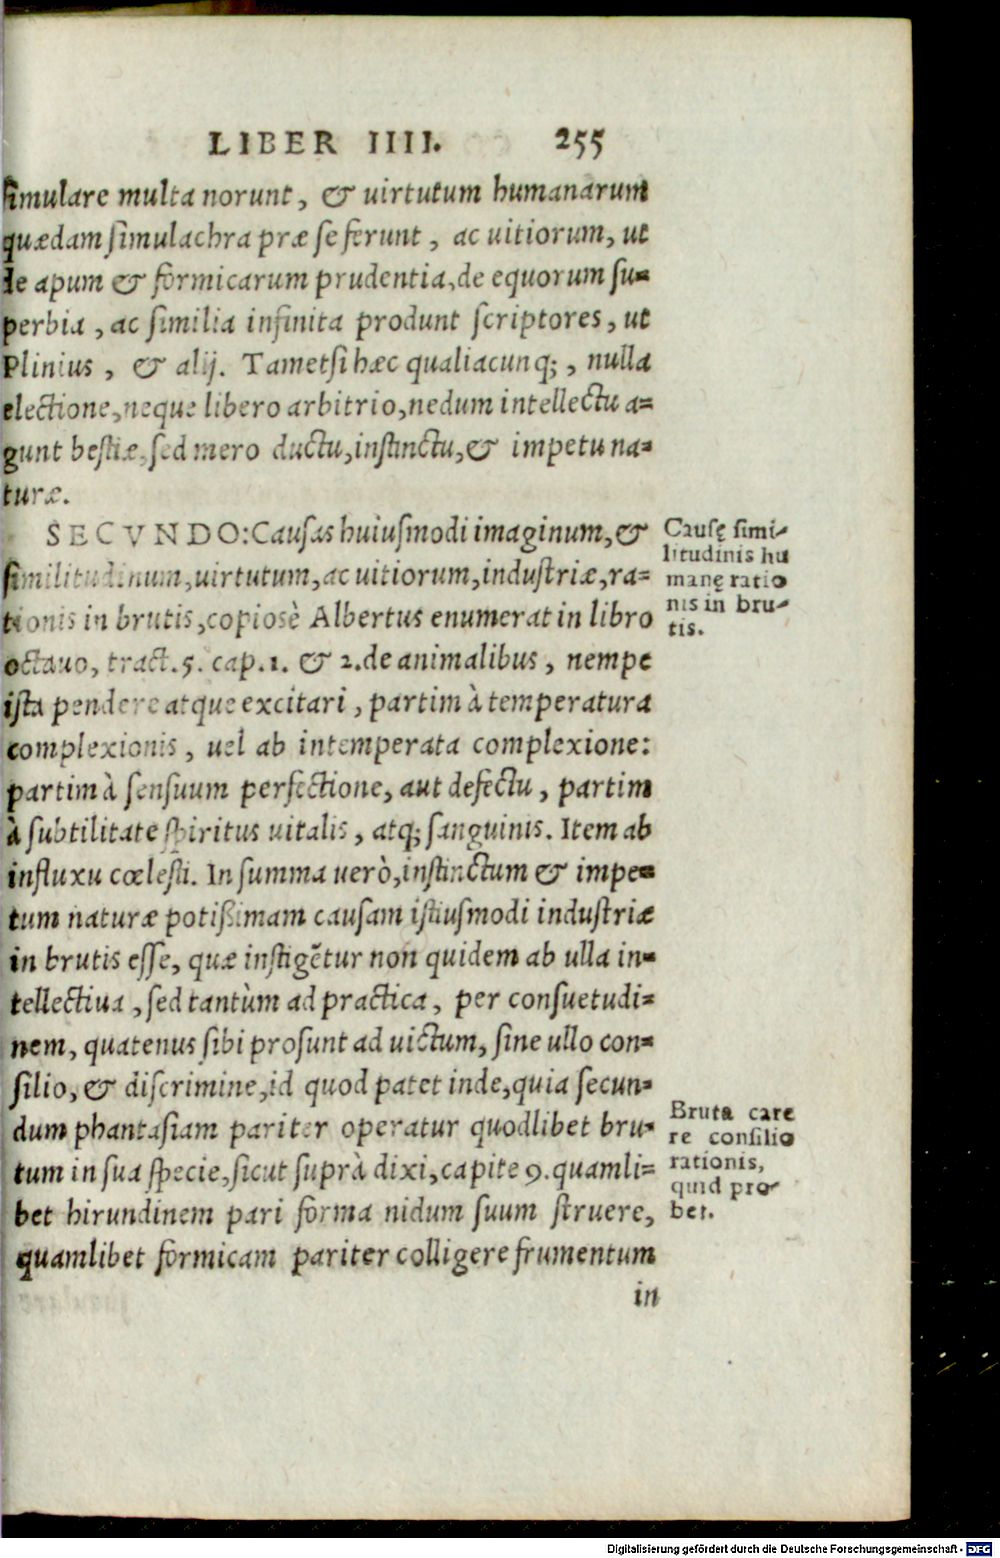 LIBER IIII. 255
simulare multa norunt, & uirtutum humanarum
quædam simulachra præ se ferunt, ac uitiorum, ut
de apum & formicarum prudentia, de equorum su=
perbia, ac similia infinita produnt scriptores, ut
Plinius, & alij. Tametsi hæc qualiacunq;, nulla
electione, neque libero arbitrio, nedum intellectu a=
gunt bestiæ, sed mero ductu, instinctu, & impetu na=
turæ.
SECVNDO: Causas huiusmodi imaginum, &
similitudinum, uirtutum, ac uitiorum, industriæ, ra=
tionis in brutis, copiosè Albertus enumerat in libro
octauo, tract. 5. cap. 1. & 2. de animalibus, nempe
ista pendere atque excitari, partim à temperatura
complexionis, uel ab intemperata complexione:
partim à sensuum perfectione, aut defectu, partim
à subtilitate spiritus uitalis, atq; sanguinis. Item ab
influxu cœlesti. In summa uerò, instinctum & impe=
tum naturæ potißimam causam istiusmodi industriæ
in brutis esse, quæ instigẽtur non quidem ab ulla in=
tellectiua, sed tantùm ad practica, per consuetudi=
nem, quatenus sibi prosunt ad uictum, sine ullo con=
silio, & discrimine, id quod patet inde, quia secun=
dum phantasiam pariter operatur quodlibet bru=
tum in sua specie, sicut suprà dixi, capite 9. quamli=
bet hirundinem pari forma nidum suum struere,
quamlibet formicam pariter colligere frumentum
in
Causę simi-
litudinis hu
manę ratio
nis in bru-
tis.
Bruta care
re consilio
rationis,
quid pro-
bet.
Digitalisierung gefördert durch die Deutsche Forschungsgemeinschaft - DFG